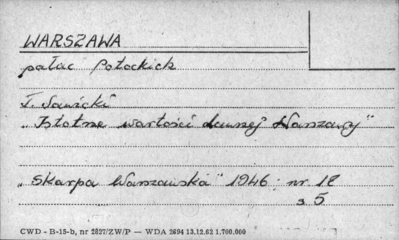 WARSZAWA
pałac Potockich
T. Sawicki
„Istotne wartości dawnej Warszawy"
„Skarpa Warszawska" 1946 nr 12
s 5
CWD - B-15-b, nr 2827/ZW/P — WDA 2694 13.12.62 1.700.000